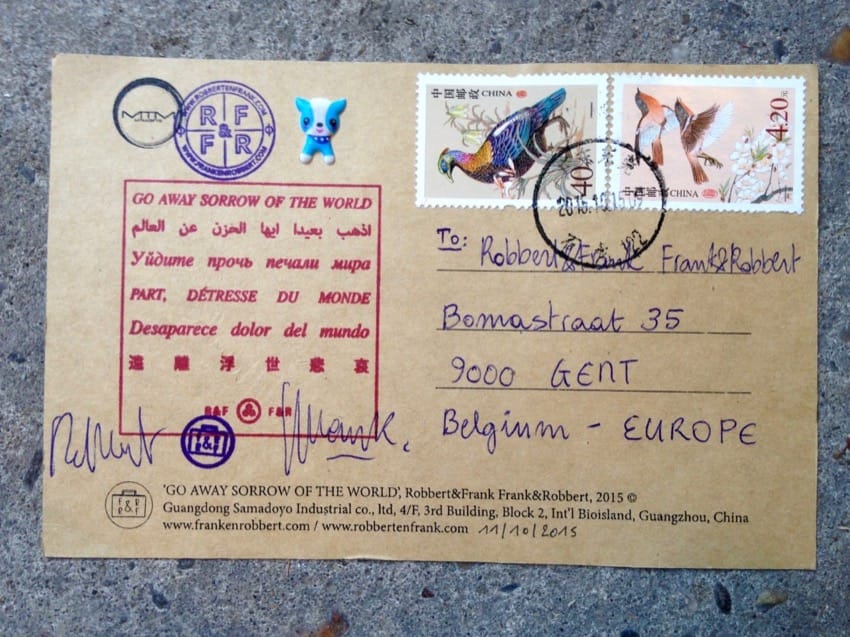 WWW.ROBBERTENFRANK.COM
R F
&
F R
WWW.FRANKENROBBERT.COM
中国邮政 CHINA
中国邮政 CHINA
4.20元
GO AWAY SORROW OF THE WORLD
اذهب بعيدا ايها الحزن عن العالم
Уйдите прочь печали мира
PART, DÉTRESSE DU MONDE
Desaparece dolor del mundo
遠離浮世悲哀
R&F F&R
To: Robbert&Frank Frank&Robbert
Bomastraat 35
9000 GENT
Belgium - EUROPE
Robbert
Frank.
'GO AWAY SORROW OF THE WORLD', Robbert&Frank Frank&Robbert, 2015 ©
Guangdong Samadoyo Industrial co., ltd, 4/F, 3rd Building, Block 2, Int'l Bioisland, Guangzhou, China
www.frankenrobbert.com / www.robbertenfrank.com 11/10/2015